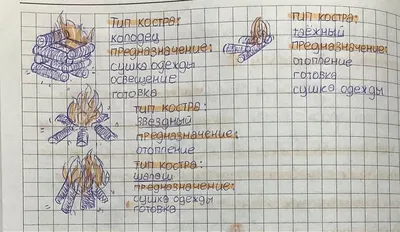 тип костра:
колодец
предназначение:
сушка одежды
освещение
готовка
тип костра:
звёздный
предназначение:
отопление
тип костра:
шалаш
предназначение:
сушка одежды
готовка
тип костра:
таёжный
предназначение:
отопление
готовка
сушка одежды